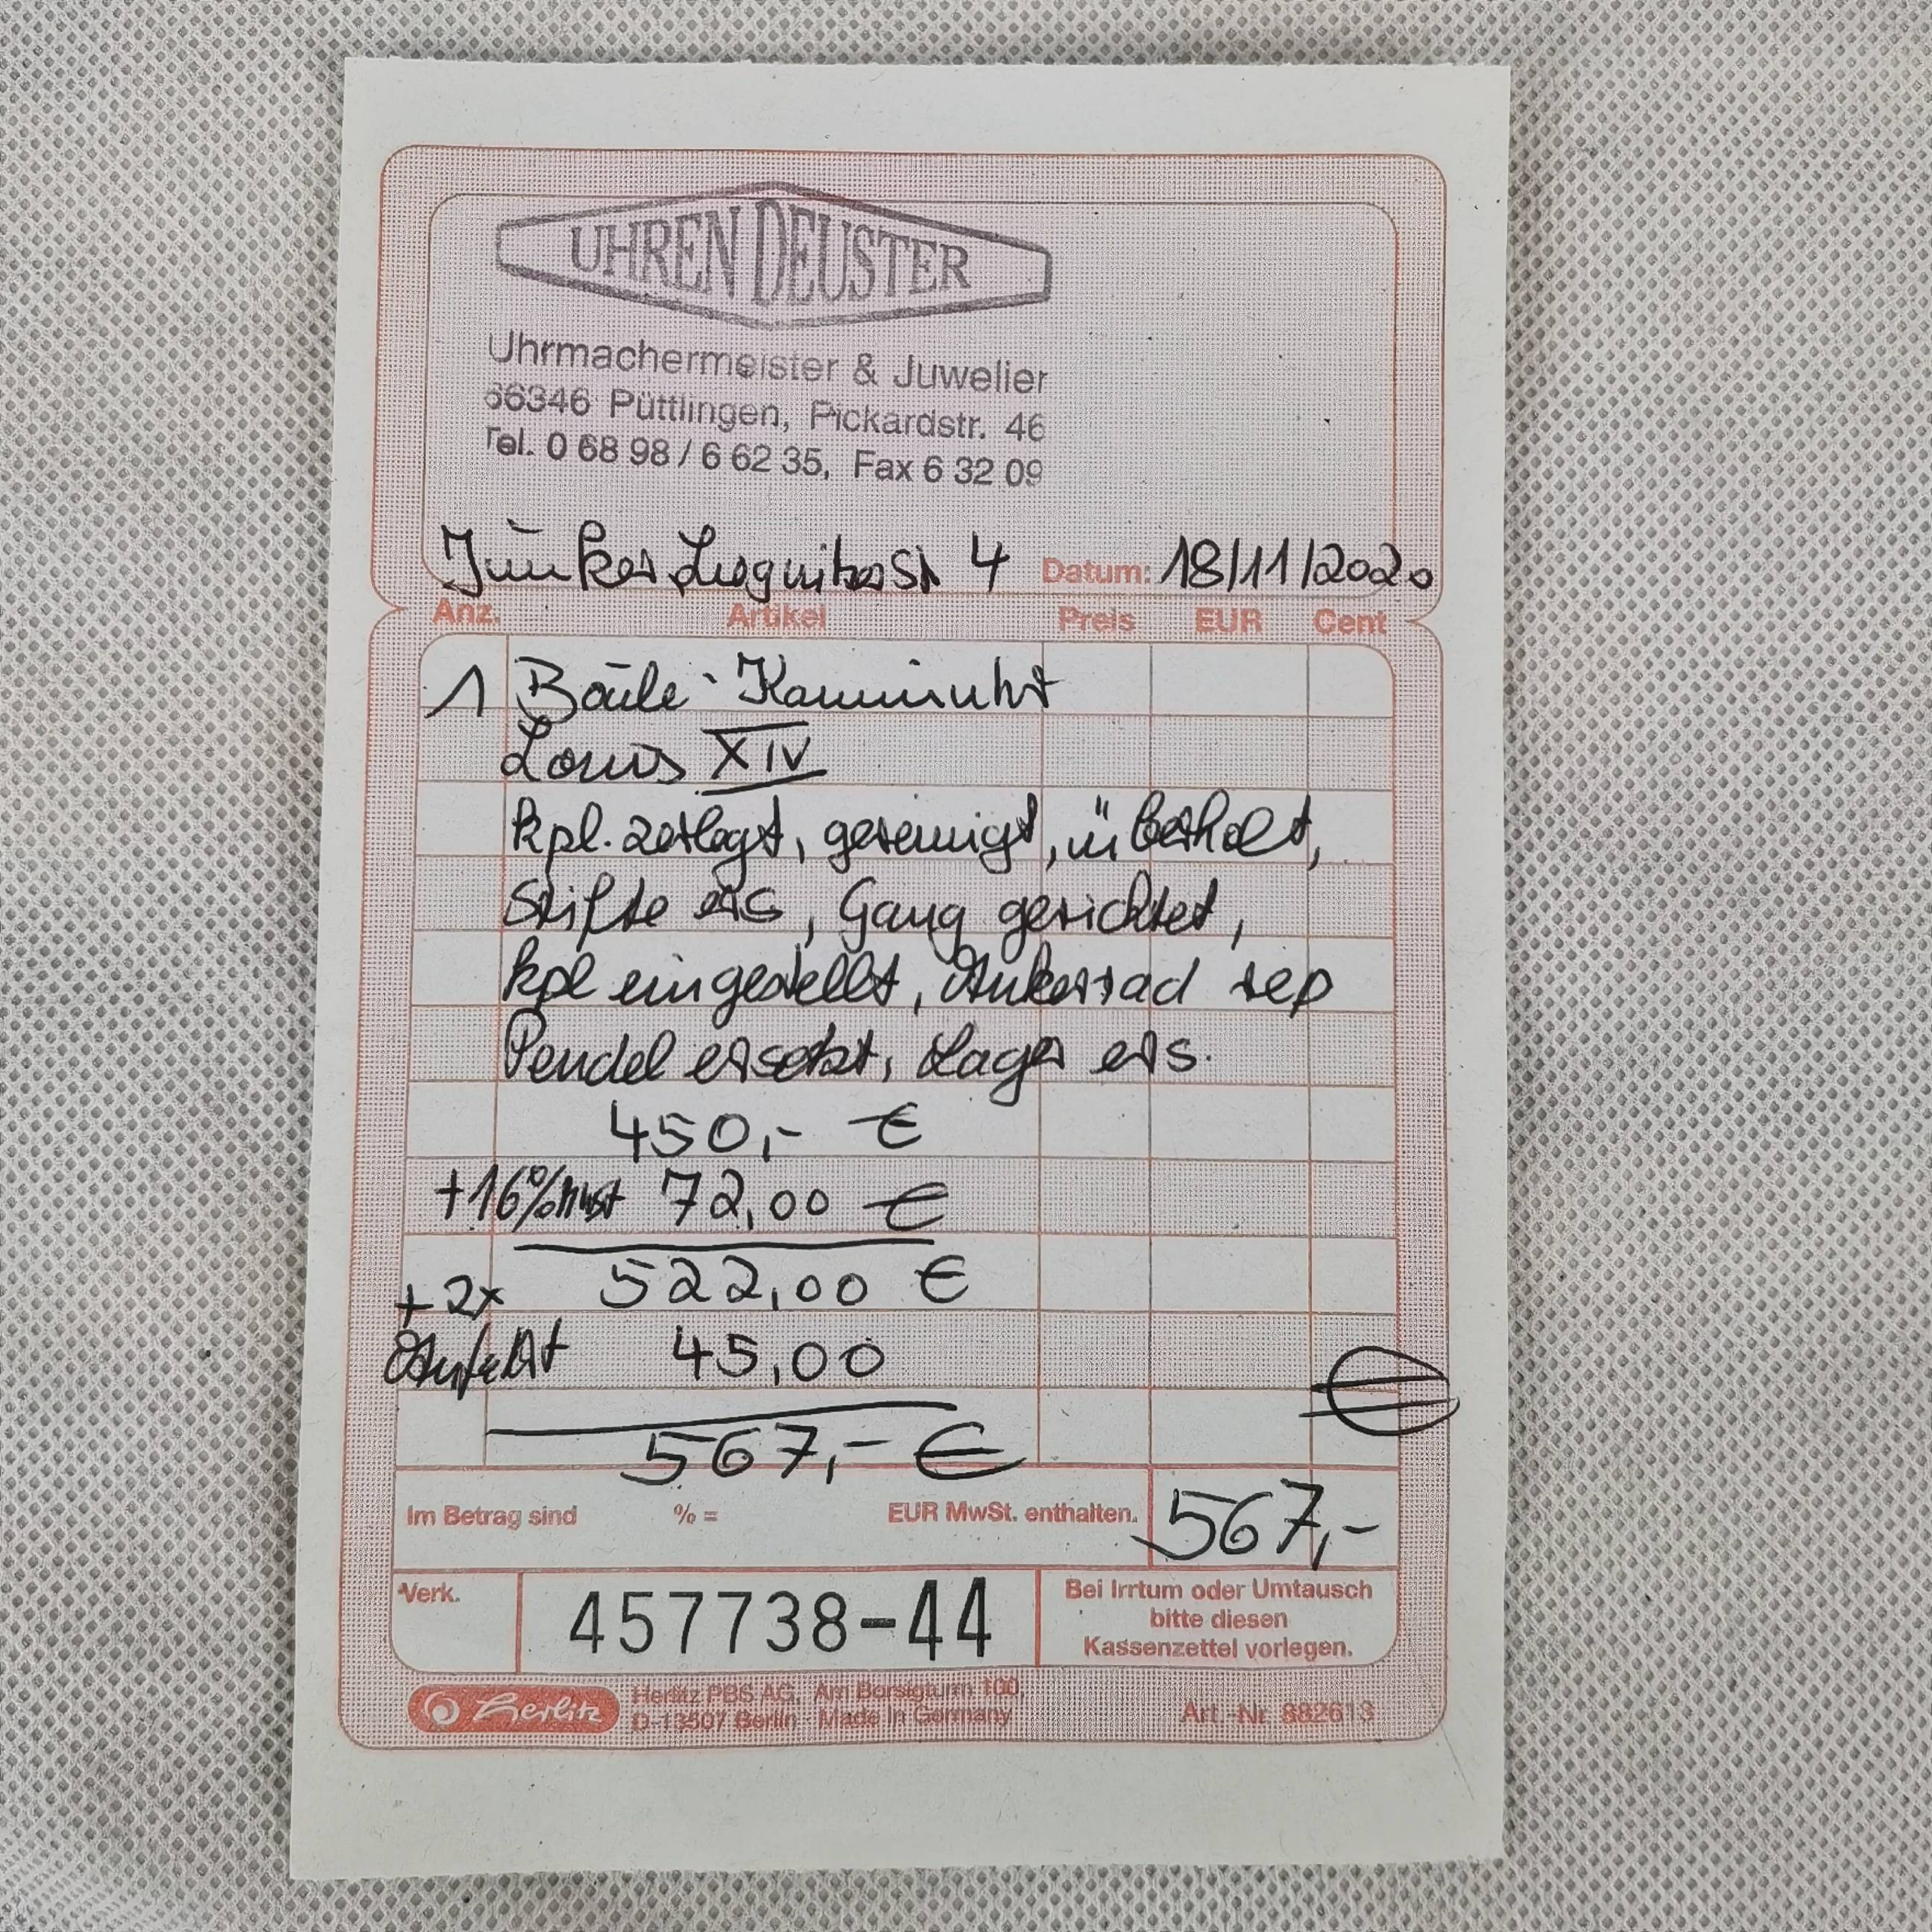 UHREN DEUSTER
Uhrmachermeister & Juwelier
66346 Püttlingen, Pickardstr. 46
Tel. 0 68 98 / 6 62 35, Fax 6 32 09
Junker 4 Datum: 18/11/2020
Anz. Artikel Preis EUR Cent
1 Boule-Kaminuhr
Louis XIV
kpl. zerlegt, gereinigt, überholt,
Stifte ers, Gang gerichtet,
kpl eingestellt, Ankerrad rep
Pendel ersetzt, Lager ers.
450,- €
+16% Mwst 72,00 €
522,00 €
+ 2x
Anfahrt 45,00
€
567,- €
Im Betrag sind % = EUR MwSt. enthalten. 567,-
Verk. 457738-44 Bei Irrtum oder Umtausch
bitte diesen
Kassenzettel vorlegen.
herlitz Herlitz PBS AG, Am Borsigturm 100,
D-13507 Berlin · Made in Germany Art.-Nr. 882613